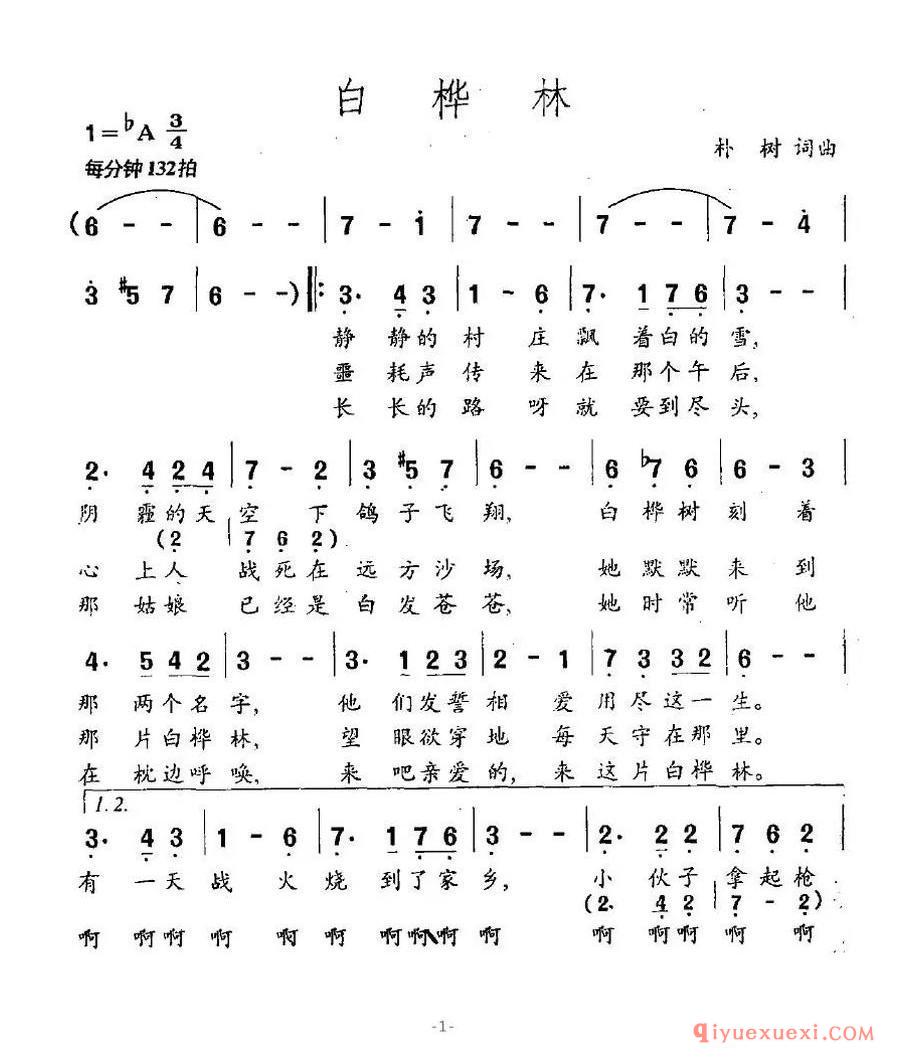 白桦林
1=♭A 3/4
朴 树 词曲
每分钟132拍
(6 - - | 6 - - | 7 - 1 | 7 - - | 7 - - | 7 - 4 |
3 #5 7 | 6 - -) |: 3. 4 3 | 1 - 6 | 7. 1 7 6 | 3 - - |
静 静的 村 庄 飘 着白的 雪,
噩 耗声 传 来 在 那个午 后,
长 长的 路 呀 就 要到尽 头,
2. 4 2 4 | 7 - 2 | 3 #5 7 | 6 - - | 6 ♭7 6 | 6 - 3
阴 霾的天 空 下 鸽 子 飞 翔, 白 桦 树 刻 着
(2 | 7 6 2)
心 上人 战 死 在 远 方 沙 场, 她 默 默 来 到
那 姑娘 已 经 是 白 发 苍 苍, 她 时 常 听 他
4. 5 4 2 | 3 - - | 3. 1 2 3 | 2 - 1 | 7 3 3 2 | 6 - - |
那 两个名 字, 他 们发誓 相 爱 用 尽 这一 生。
那 片白桦 林, 望 眼欲穿 地 每 天 守 在那 里。
在 枕边呼 唤, 来 吧亲爱 的, 来 这 片 白桦 林。
1.2.
3. 4 3 | 1 - 6 | 7. 1 7 6 | 3 - - | 2. 2 2 | 7 6 2
有 一天 战 火 烧 到了家 乡, 小 伙子 拿 起 枪
(2. 4 2 | 7 - 2)
啊 啊啊 啊 啊 啊 啊啊啊 啊 啊 啊啊 啊 啊
-1-
Qiyuexuexi.COM